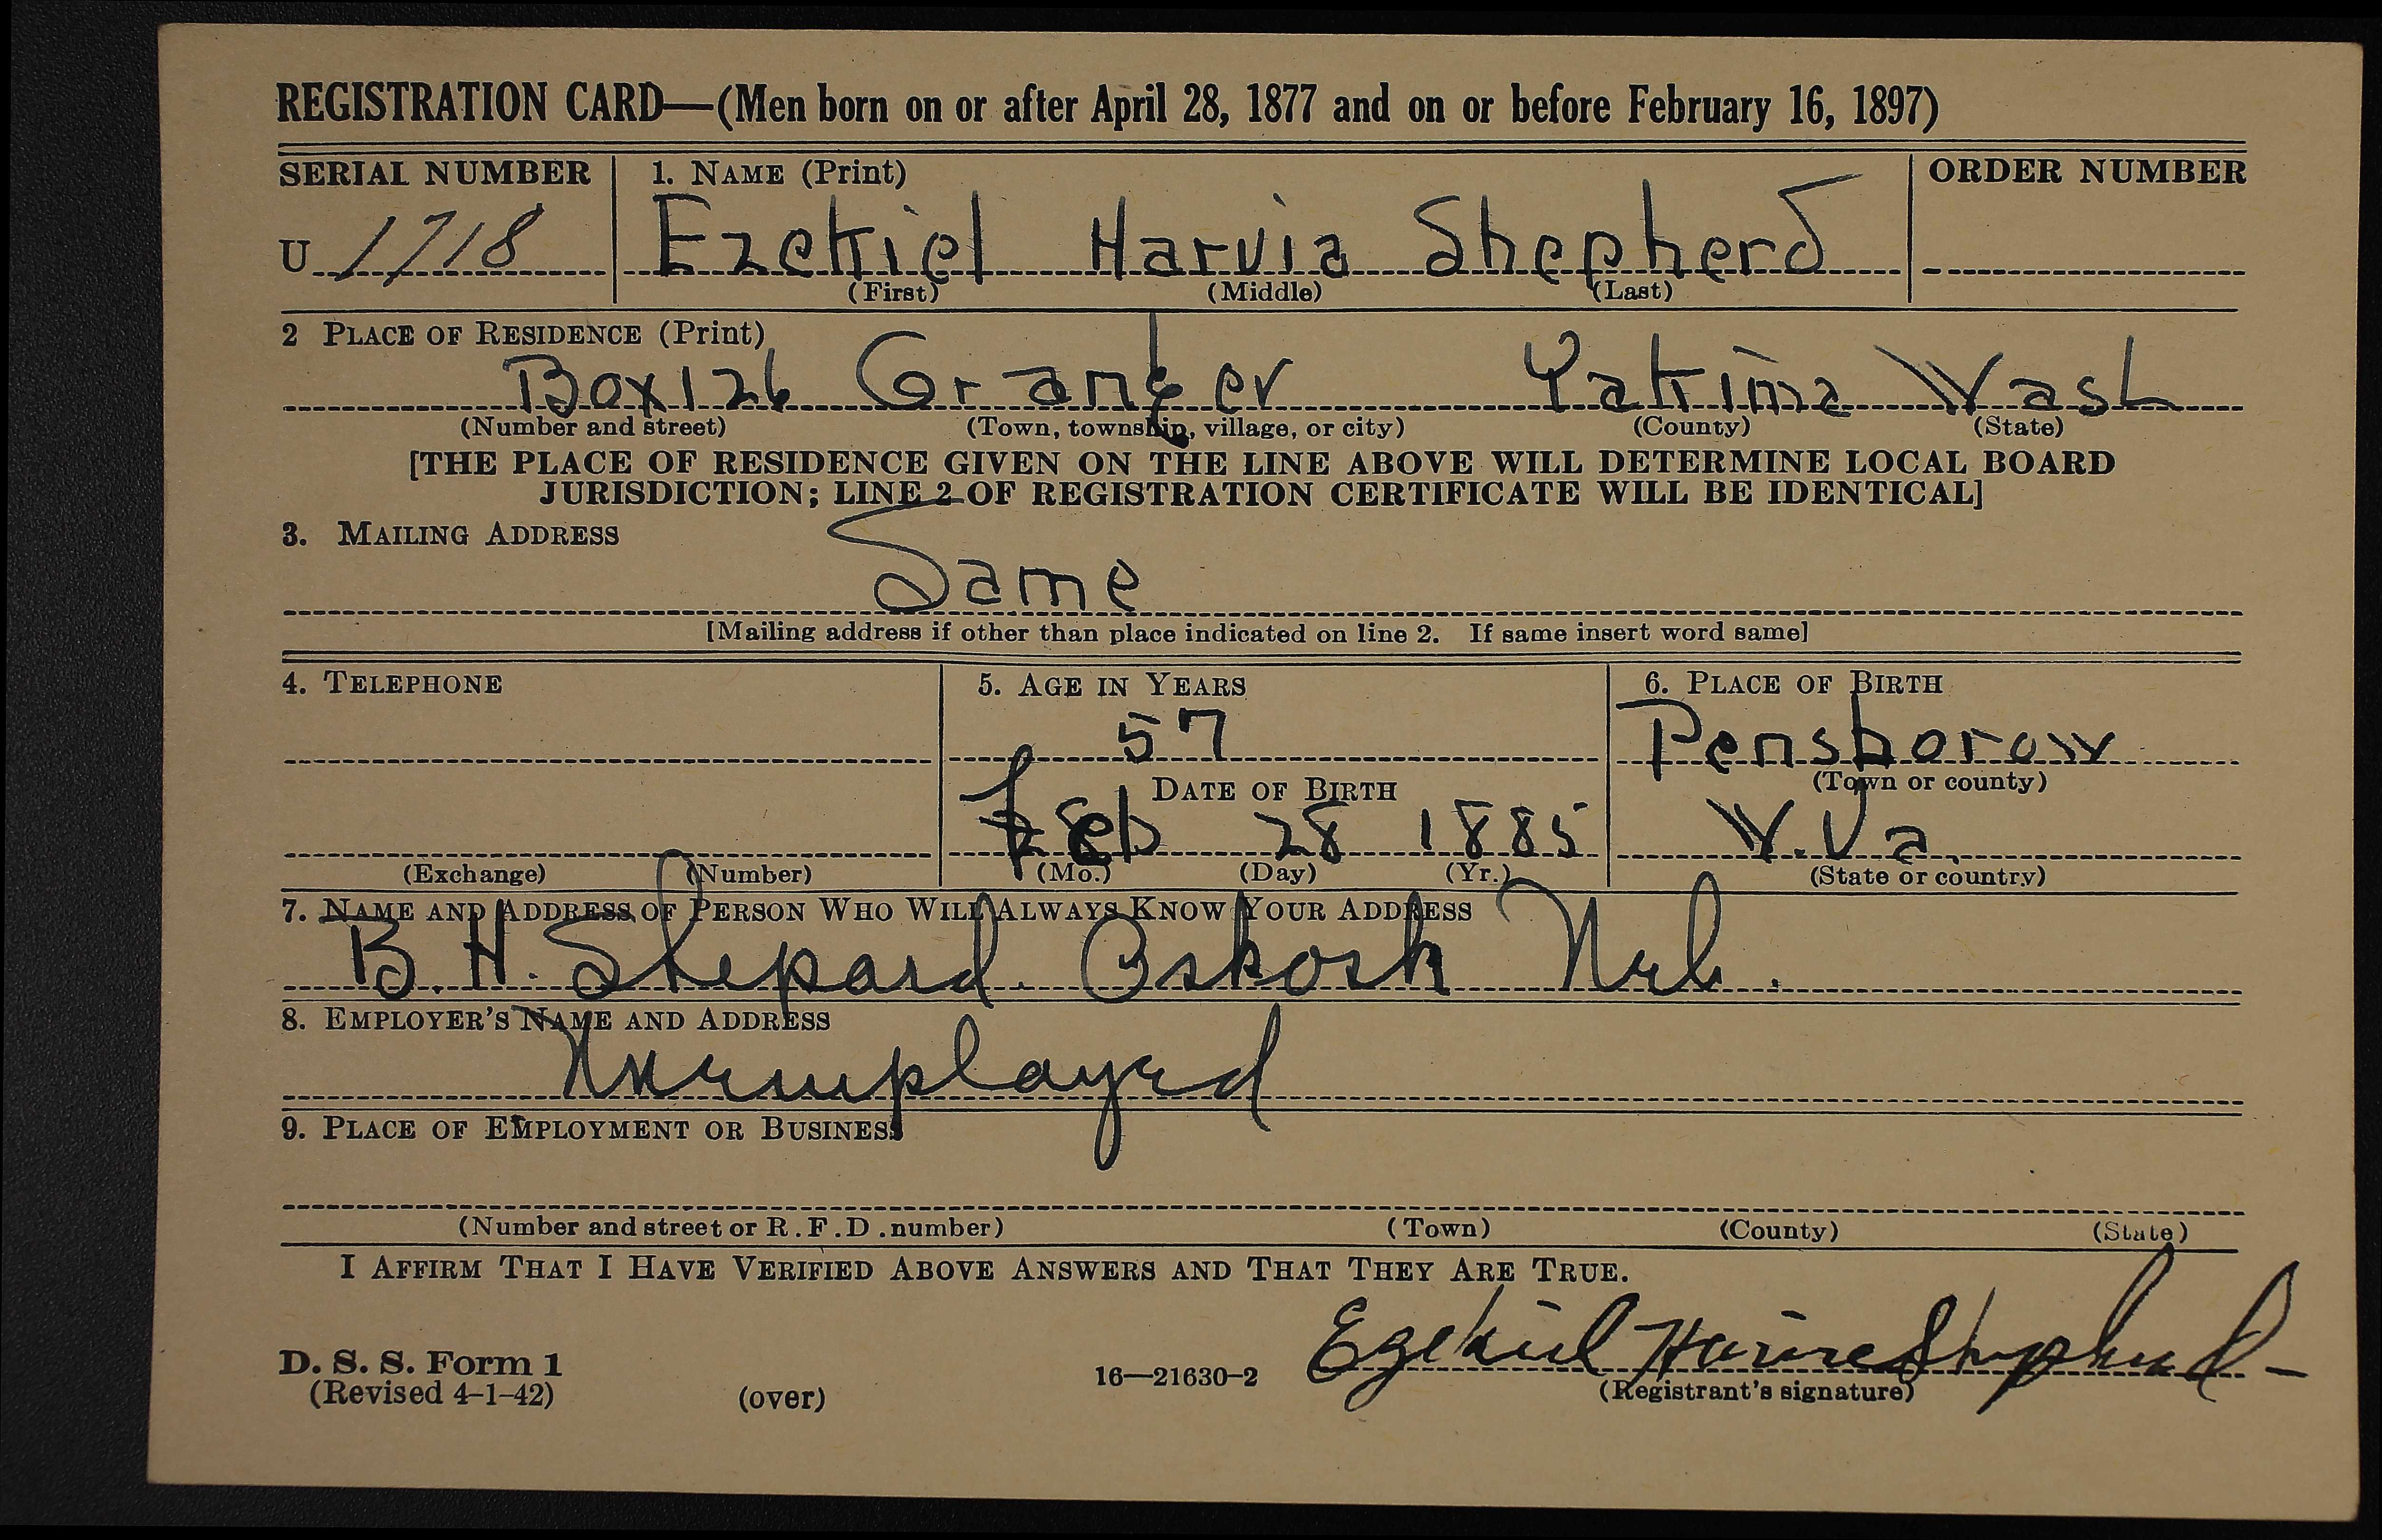 REGISTRATION CARD—(Men born on or after April 28, 1877 and on or before February 16, 1897)
SERIAL NUMBER 1. NAME (Print) ORDER NUMBER
U 1718 Ezekiel Harvia Shepherd
(First) (Middle) (Last)
2 PLACE OF RESIDENCE (Print)
Box 126 Granger Yakima Wash
(Number and street) (Town, township, village, or city) (County) (State)
[THE PLACE OF RESIDENCE GIVEN ON THE LINE ABOVE WILL DETERMINE LOCAL BOARD
JURISDICTION; LINE 2 OF REGISTRATION CERTIFICATE WILL BE IDENTICAL]
3. MAILING ADDRESS
Same
[Mailing address if other than place indicated on line 2. If same insert word same]
4. TELEPHONE 5. AGE IN YEARS 6. PLACE OF BIRTH
57 Pensborow
DATE OF BIRTH (Town or county)
Feb 28 1885 W. Va.
(Exchange) (Number) (Mo.) (Day) (Yr.) (State or country)
7. NAME AND ADDRESS OF PERSON WHO WILL ALWAYS KNOW YOUR ADDRESS
B. H. Shepard. Oskosh Neb.
8. EMPLOYER'S NAME AND ADDRESS
Unemployed
9. PLACE OF EMPLOYMENT OR BUSINESS
(Number and street or R. F. D. number) (Town) (County) (State)
I AFFIRM THAT I HAVE VERIFIED ABOVE ANSWERS AND THAT THEY ARE TRUE.
Ezekiel Shepherd
D. S. S. Form 1
(Revised 4-1-42) (over) 16—21630-2 (Registrant's signature)